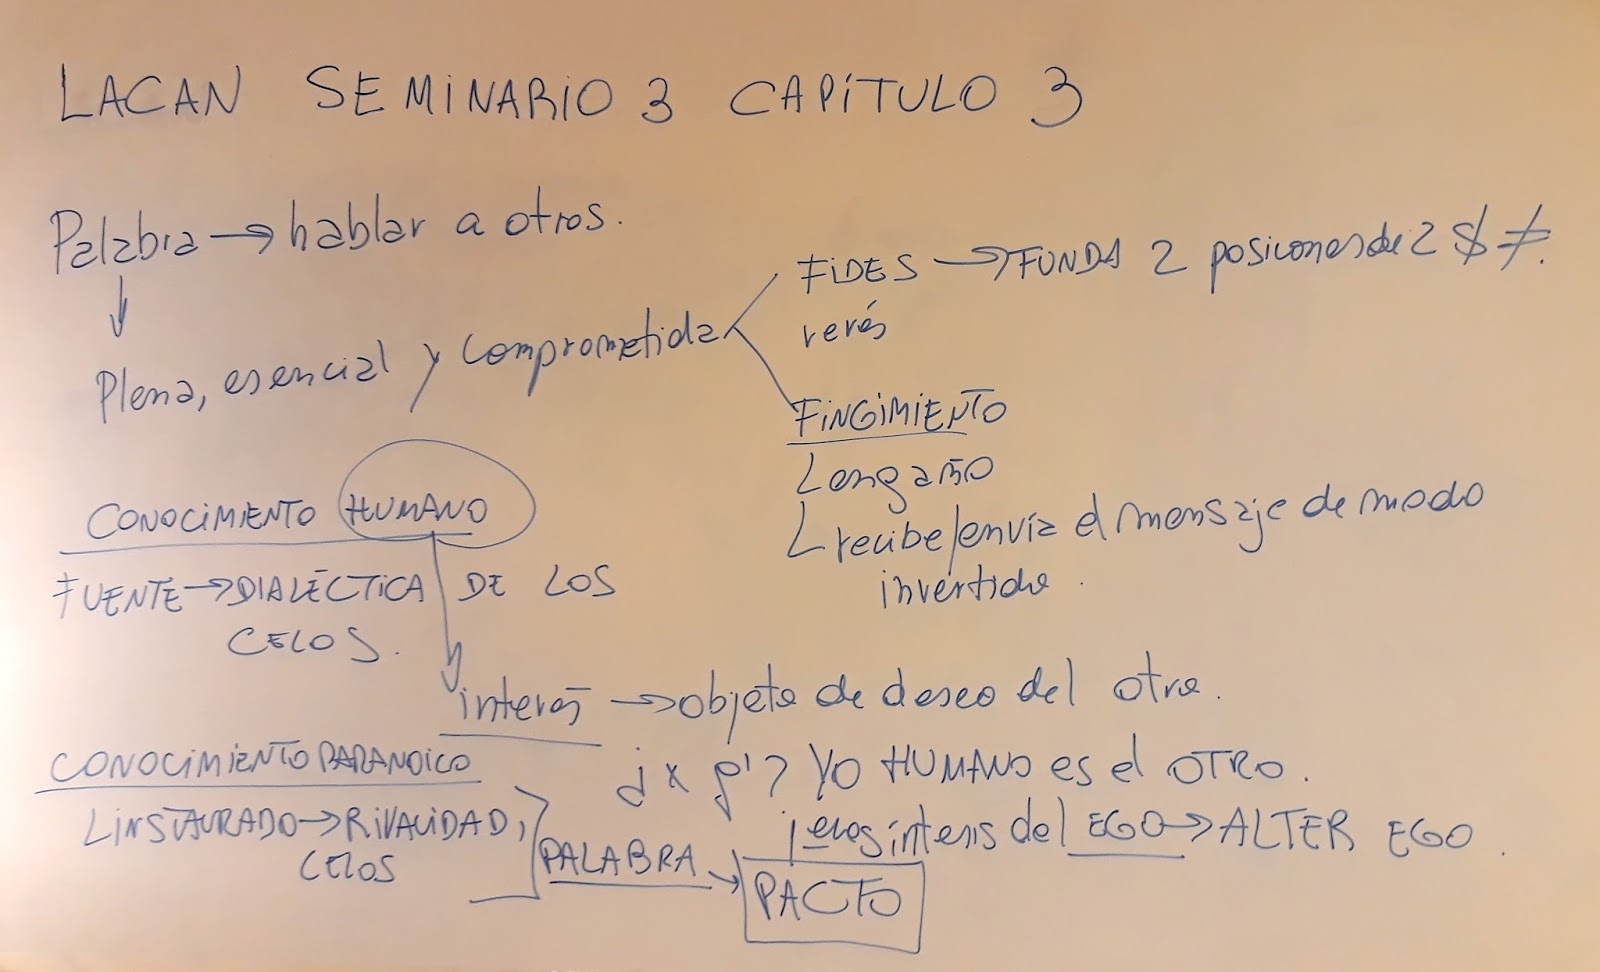 LACAN SEMINARIO 3 CAPÍTULO 3
Palabra → hablar a otros.
FIDES → FUNDA 2 posiciones de 2 $ ≠.
revés
Plena, esencial y comprometida
FINGIMIENTO
engaño
recibe/envía el mensaje de modo
invertido.
CONOCIMIENTO HUMANO
FUENTE → DIALÉCTICA DE LOS
CELOS.
interés → objeto de deseo del otro.
CONOCIMIENTO PARANOICO
¿x q'? YO HUMANO es el OTRO.
INSTAURADO → RIVALIDAD,
CELOS
síntesis del EGO → ALTER EGO.
PALABRA →
PACTO